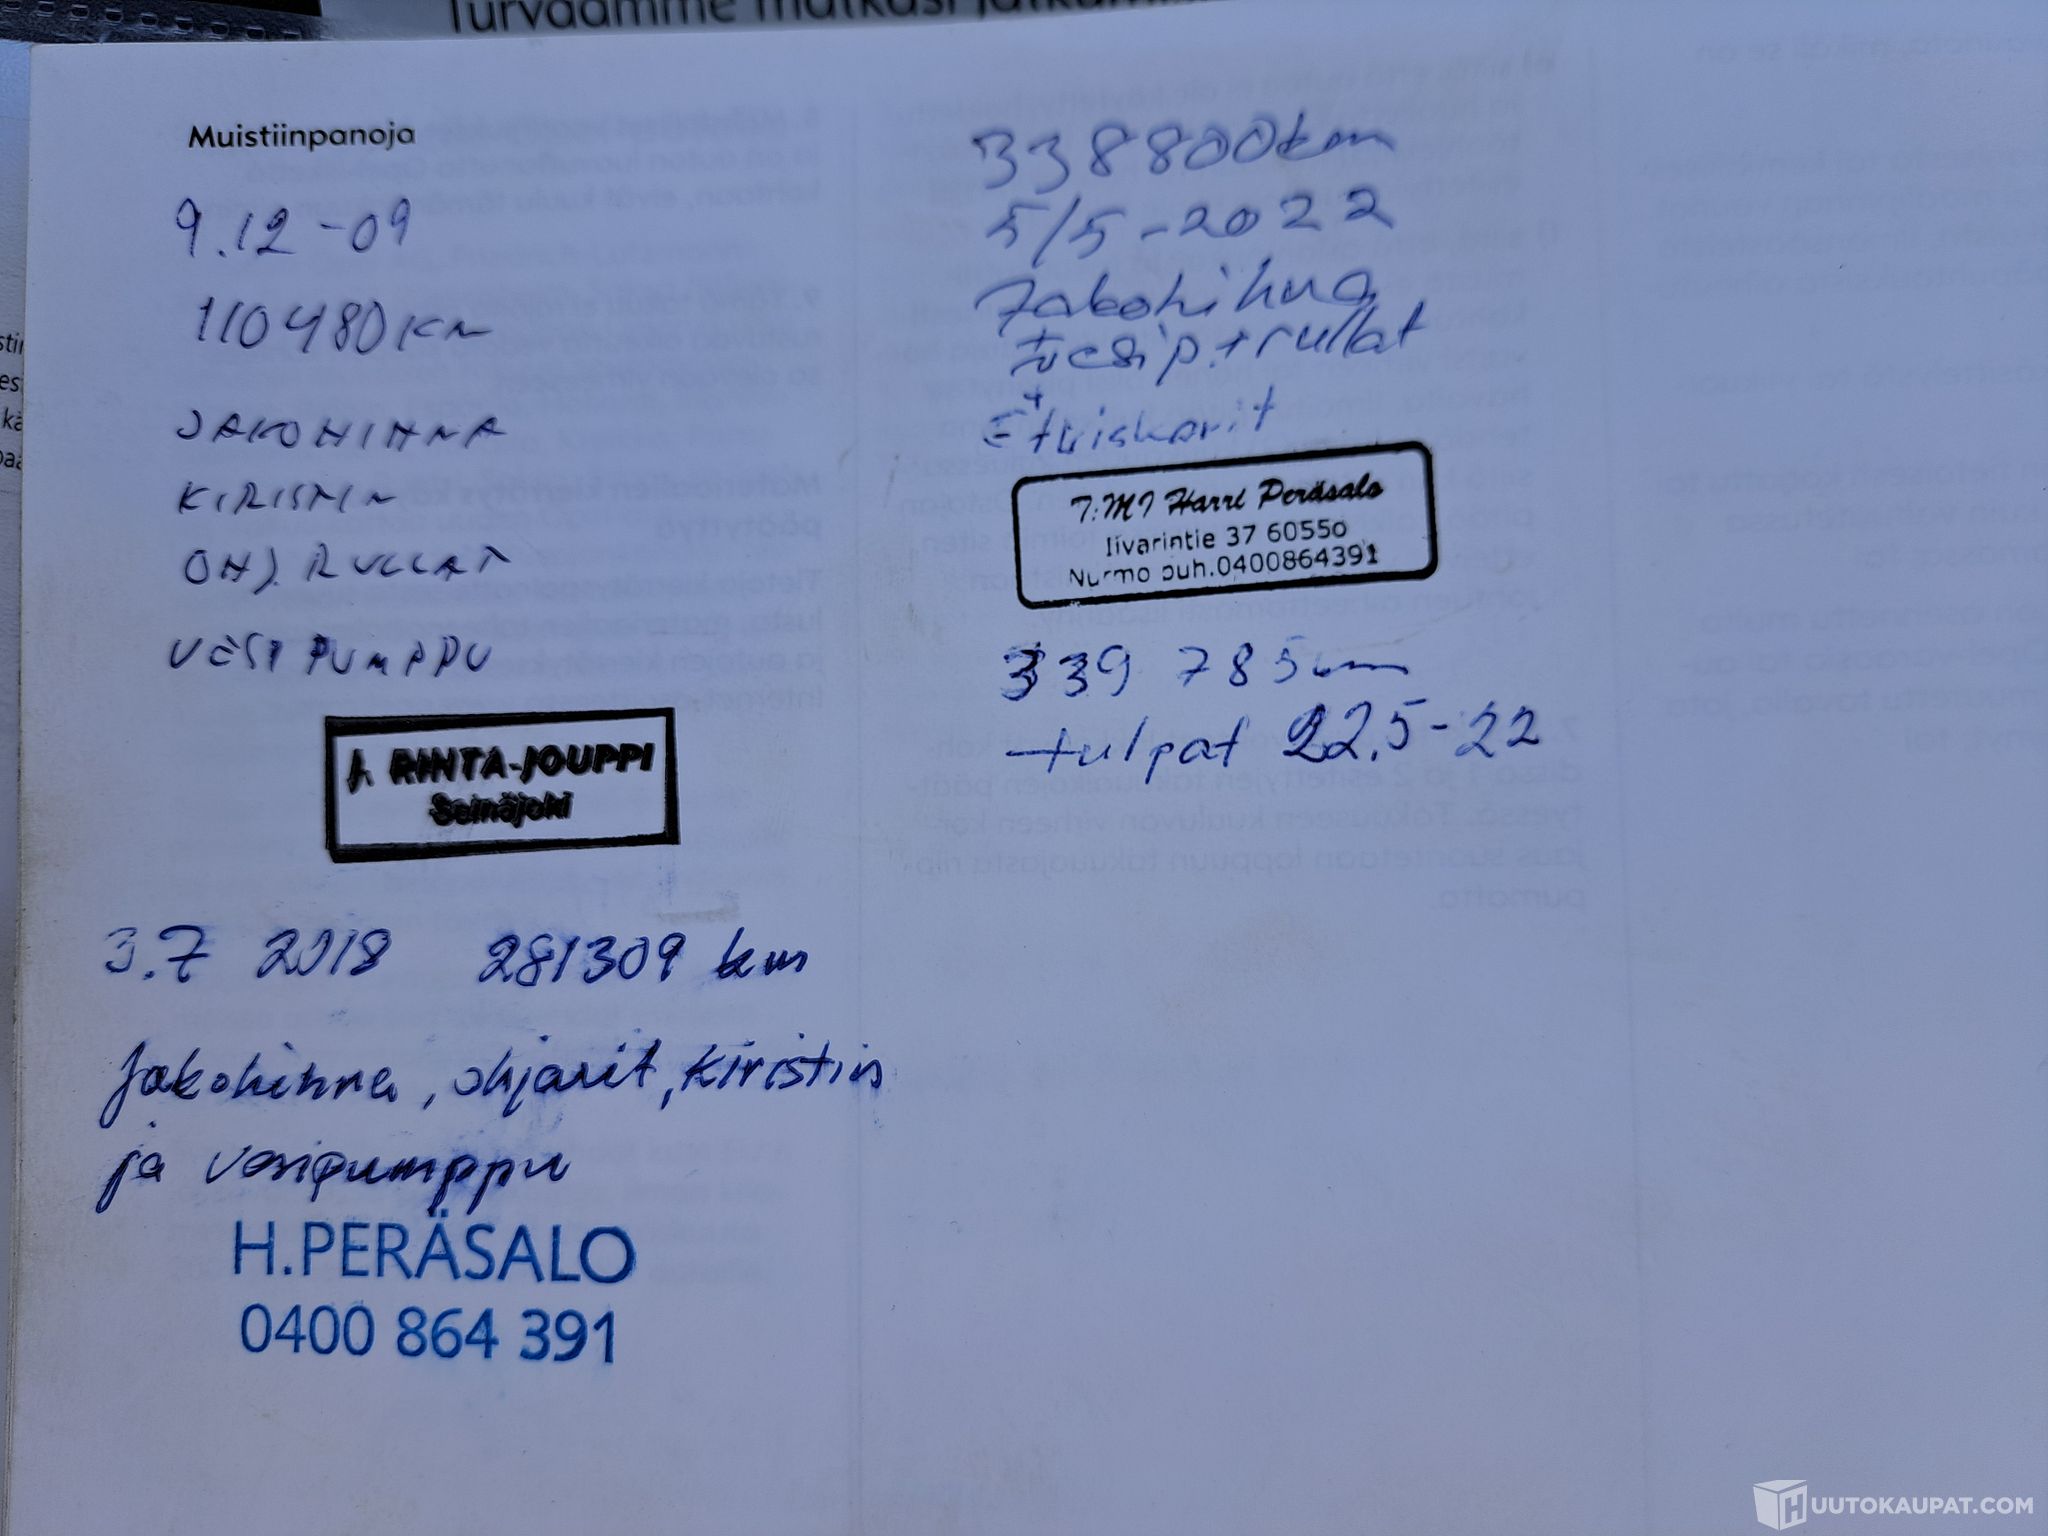 Turvaamme matkasi jatkumi
Muistiinpanoja
9.12-09
110480KM
JAKOHIHNA
KIRISTIN
OHJ. RULLAT
VESIPUMPPU
J. RINTA-JOUPPI
Seinäjoki
3.7 2018 281309 km
Jakohihna, ohjarit, kiristin
ja vesipumppu
H.PERÄSALO
0400 864 391
338800km
5/5-2022
Jakohihna
+vesip.+rullat
+
Etuiskarit
T:MI Harri Peräsalo
Iivarintie 37 60550
Nurmo puh.0400864391
339 785km
tulpat 22.5-22
HUUTOKAUPAT.COM